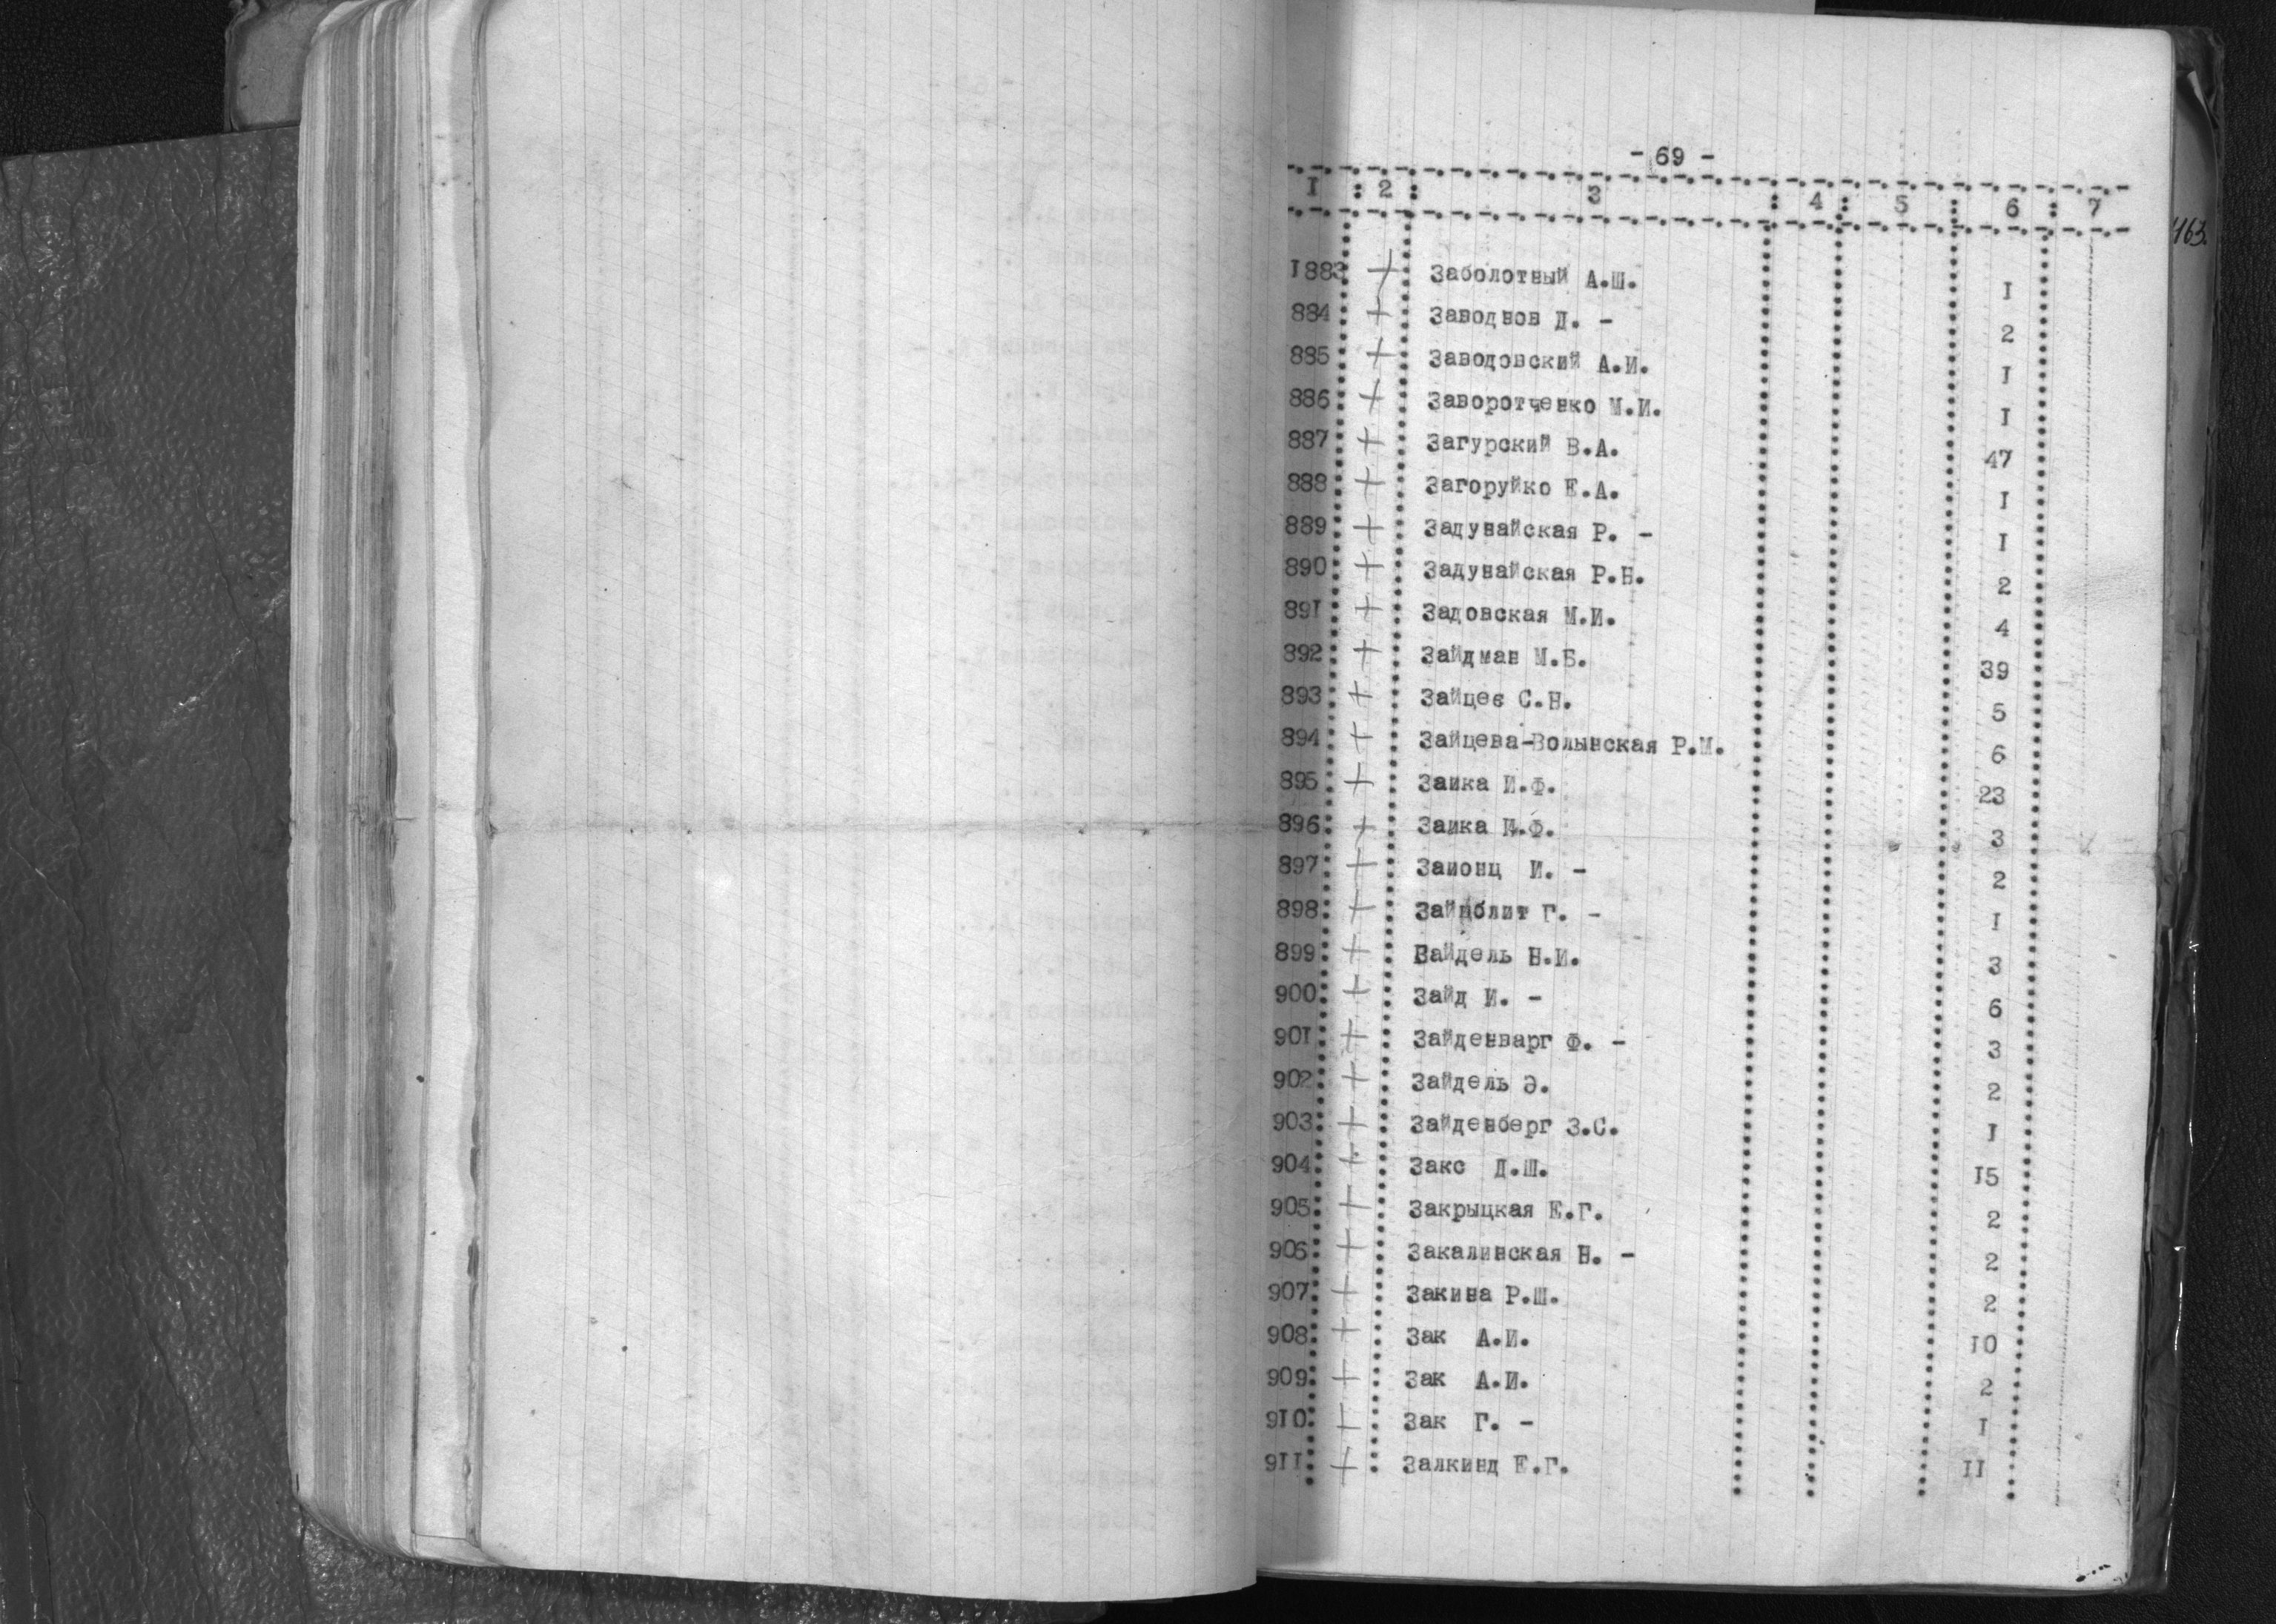 - 69 -
I : 2 : 3 : 4 : 5 : 6 : 7
463.
I883 + Заболотный А.Ш. I
884 + Заводнов Д. - 2
885 + Заводовский А.И. I
886 + Заворотченко М.И. I
887 + Загурский В.А. 47
888 + Загоруйко Е.А. I
889 + Задунайская Р. - I
890 + Задунайская Р.Н. 2
891 + Задовская М.И. 4
892 + Зайдман М.Б. 39
893 + Зайцев С.Н. 5
894 + Зайцева-Волынская Р.М. 6
895 + Заика И.Ф. 23
896 + Заика П.Ф. 3
897 + Заионц И. - 2
898 + Зайдблит Г. - I
899 + Зайдель Н.И. 3
900 + Зайд И. - 6
90I + Зайденварг Ф. - 3
902 + Зайдель Э. 2
903 + Зайденберг З.С. I
904 + Закс Д.Ш. I5
905 + Закрыцкая Е.Г. 2
906 + Закалинская Н. - 2
907 + Закина Р.Ш. 2
908 + Зак А.И. I0
909 + Зак А.И. 2
9I0 + Зак Г. - I
9II + Залкинд Е.Г. II